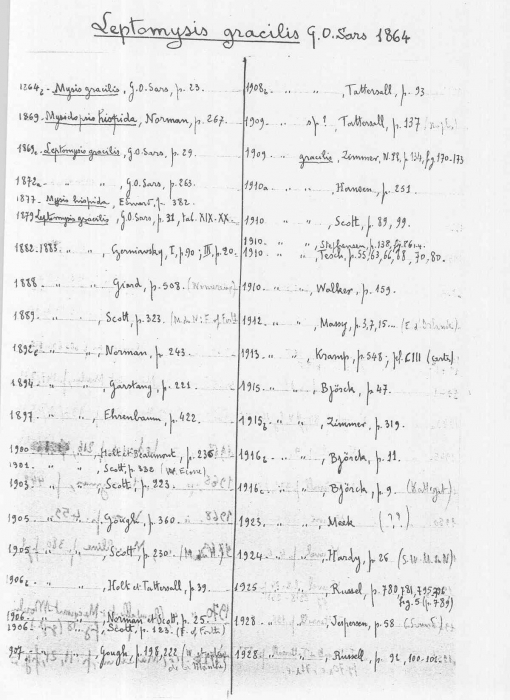 Leptomysis gracilis G.O.Sars 1864
1864c - Mysis gracilis, G.O.Sars, p. 23.
1869. Mysidopsis hispida, Norman, p. 267.
1869c Leptomysis gracilis, G.O.Sars, p. 29.
1872a " " , G.O.Sars, p. 263.
1877. Mysis hispida, p. 382.
1879 Leptomysis gracilis, G.O.Sars, p. 31, tab. XIX-XX.
1882-1883. " " , Czerniavsky, I, p.90; III, p.20.
1888 " " , Giard, p. 508.
1889. " " , Scott, p. 323.
1892c " " , Norman, p. 243.
1894 " " , Garstang, p. 221.
1897 " " , Ehrenbaum, p. 422.
1900 " " , Holt et Beaumont, p. 236
1901. " " , Scott, p. 332
1903. " " , Scott, p. 223.
1905 " " , Gough, p. 360.
1905. " " , Scott, p. 230.
1906c " " , Holt et Tattersall, p 39.
1906. " " , Norman et Scott, p. 25.
1906. " " , Scott, p. 123. (F. of Forth)
907. " " , Gough, p. 198, 222
1908b " " , Tattersall, p. 93
1909. " sp ?, Tattersall, p. 137
1909 " gracilis, Zimmer, p. 134, fig 170-173
1910a " " , Hansen, p. 251.
1910 " " , Scott, p. 89, 99.
1910. " " , Stephensen, p. 138,
1910. " " , Tesch, p. 55, 63, 66, 68, 70, 80.
1910. " " , Walker, p. 159.
1912. " " , Massy, p. 3, 7, 15
1913. " " , Kramp, p. 548; pl. CIII (carte)
1915. " " , Björck, p. 47.
1915b " " , Zimmer, p. 319.
1916a " " , Björck, p. 11.
1916c " " , Björck, p. 9 (Kattegat)
1923. " " , Meek (??)
1924 " " , Hardy, p. 26
1925 " " , Russel, p. 780, 781, 795,
fig. 5 (p. 789)
1928 " " , Jespersen, p. 58
1928. " " , Russell, p. 92, 100-102.